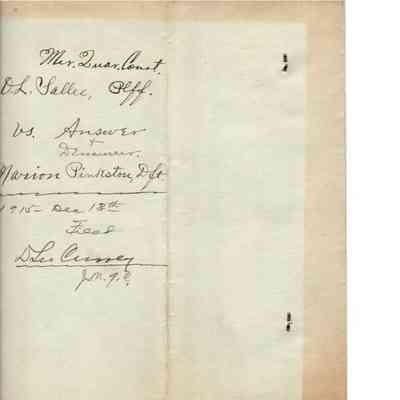 Mer. Quar. Court.
D.L. Sallee, Plff.
vs. Answer
+
Demurrer.
Marion Pinkston, Dft
1915 Dec 18th
Filed
D Lee